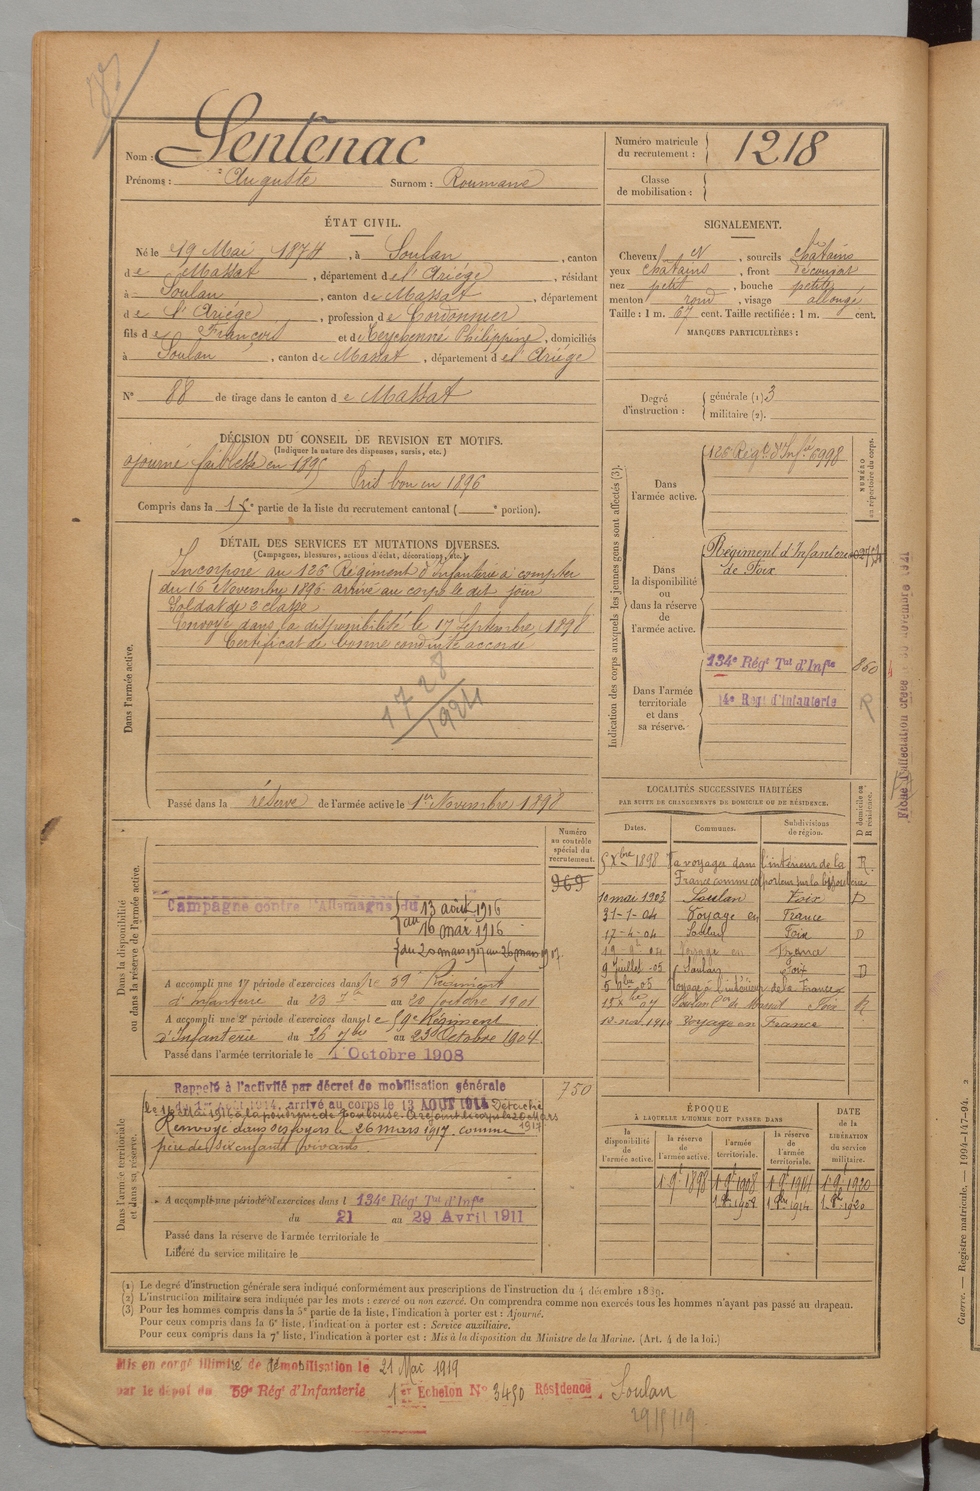 Nom : Sentenac
Prénoms : Auguste Surnom : Roumané
Numéro matricule du recrutement : 1218
Classe de mobilisation :
ÉTAT CIVIL.
Né le 19 Mai 1874, à Soulan, canton
de Massat, département de l'Ariége, résidant
à Soulan, canton de Massat, département
de l'Ariége, profession de Cordonnier
fils de François et de Philippine, domiciliés
à Soulan, canton de Massat, département de l'Ariége
N° 88 de tirage dans le canton de Massat
SIGNALEMENT.
Cheveux N, sourcils châtains
yeux châtains, front découvert
nez petit, bouche petite
menton rond, visage allongé
Taille : 1 m. 67 cent. Taille rectifiée : 1 m. cent.
MARQUES PARTICULIÈRES :
Degré d'instruction : générale (1) 3
militaire (2).
DÉCISION DU CONSEIL DE REVISION ET MOTIFS.
(Indiquer la nature des dispenses, sursis, etc.)
ajourné faiblesse en 1895
Pris bon en 1896
Compris dans la 1e partie de la liste du recrutement cantonal ( e portion).
DÉTAIL DES SERVICES ET MUTATIONS DIVERSES.
(Campagnes, blessures, actions d'éclat, décorations, etc.)
Dans l'armée active.
Incorporé au 126 Régiment d'Infanterie à compter
du 16 Novembre 1896 arrivé au corps le dit jour
Soldat de 2 classe
Envoyé dans la disponibilité le 17 Septembre 1898
Certificat de bonne conduite accordé
1728
1924
Passé dans la réserve de l'armée active le 1er Novembre 1898
Indication des corps auxquels les jeunes gens sont affectés (3).
NUMÉRO au répertoire du corps.
Dans l'armée active.
126 Régt d'Infie 6998
Dans la disponibilité ou dans la réserve de l'armée active.
Régiment d'Infanterie
de Foix
Dans l'armée territoriale et dans sa réserve.
134e Régt Tal d'Infie 860
14e Régt d'Infanterie R
LOCALITÉS SUCCESSIVES HABITÉES
PAR SUITE DE CHANGEMENTS DE DOMICILE OU DE RÉSIDENCE.
Dates. Communes. Subdivisions de région. D domicile ou R résidence.
5 Xbre 1898 a voyager dans l'intérieur de la R
France comme colporteur
10 mai 1903 Soulan Foix D
31-1-04 Voyage en France
17-4-04 Soulan Foix D
Voyage en France
9 juillet -05 Soulan Foix D
Voyage à l'intérieur de la France
Foix R
1910 voyage en France
Dans la disponibilité ou dans la réserve de l'armée active.
Numéro au contrôle spécial du recrutement.
969
Campagne contre l'Allemagne du 13 août 1916
au 16 mai 1916
du 20 mars 1917 au 26 mars 1917
A accompli une 1e période d'exercices dans le 59e Régiment
d'Infanterie du 23 7bre au 20 Octobre 1901
A accompli une 2e période d'exercices dans le 59e Régiment
d'Infanterie du 26 7bre au 23 Octobre 1904
Passé dans l'armée territoriale le 1 Octobre 1908
Dans l'armée territoriale et dans sa réserve.
750
Rappelé à l'activité par décret de mobilisation générale
du 1er Août 1914, arrivé au corps le 13 AOUT 1914 Détaché
Renvoyé dans ses foyers le 26 mars 1917 comme
père de six enfants vivants
A accompli une période d'exercices dans l 134e Régt Tal d'Infie
du 21 au 29 Avril 1911
Passé dans la réserve de l'armée territoriale le
Libéré du service militaire le
ÉPOQUE
À LAQUELLE L'HOMME DOIT PASSER DANS
DATE de la LIBÉRATION du service militaire.
la disponibilité de l'armée active. la réserve de l'armée active. l'armée territoriale. la réserve de l'armée territoriale.
1 9bre 1898 1 9bre 1908 1 9bre 1914 1 9bre 1920
(1) Le degré d'instruction générale sera indiqué conformément aux prescriptions de l'instruction du 4 décembre 1889.
(2) L'instruction militaire sera indiquée par les mots : exercé ou non exercé. On comprendra comme non exercés tous les hommes n'ayant pas passé au drapeau.
(3) Pour les hommes compris dans la 5e partie de la liste, l'indication à porter est : Ajourné.
Pour ceux compris dans la 6e liste, l'indication à porter est : Service auxiliaire.
Pour ceux compris dans la 7e liste, l'indication à porter est : Mis à la disposition du Ministre de la Marine. (Art. 4 de la loi.)
Mis en congé illimité de démobilisation le 21 Mai 1919
par le dépôt du 59e Régt d'Infanterie 1er Echelon N° 3450 Résidence Soulan
Guerre. — Registre matricule. — 1994-147-94.